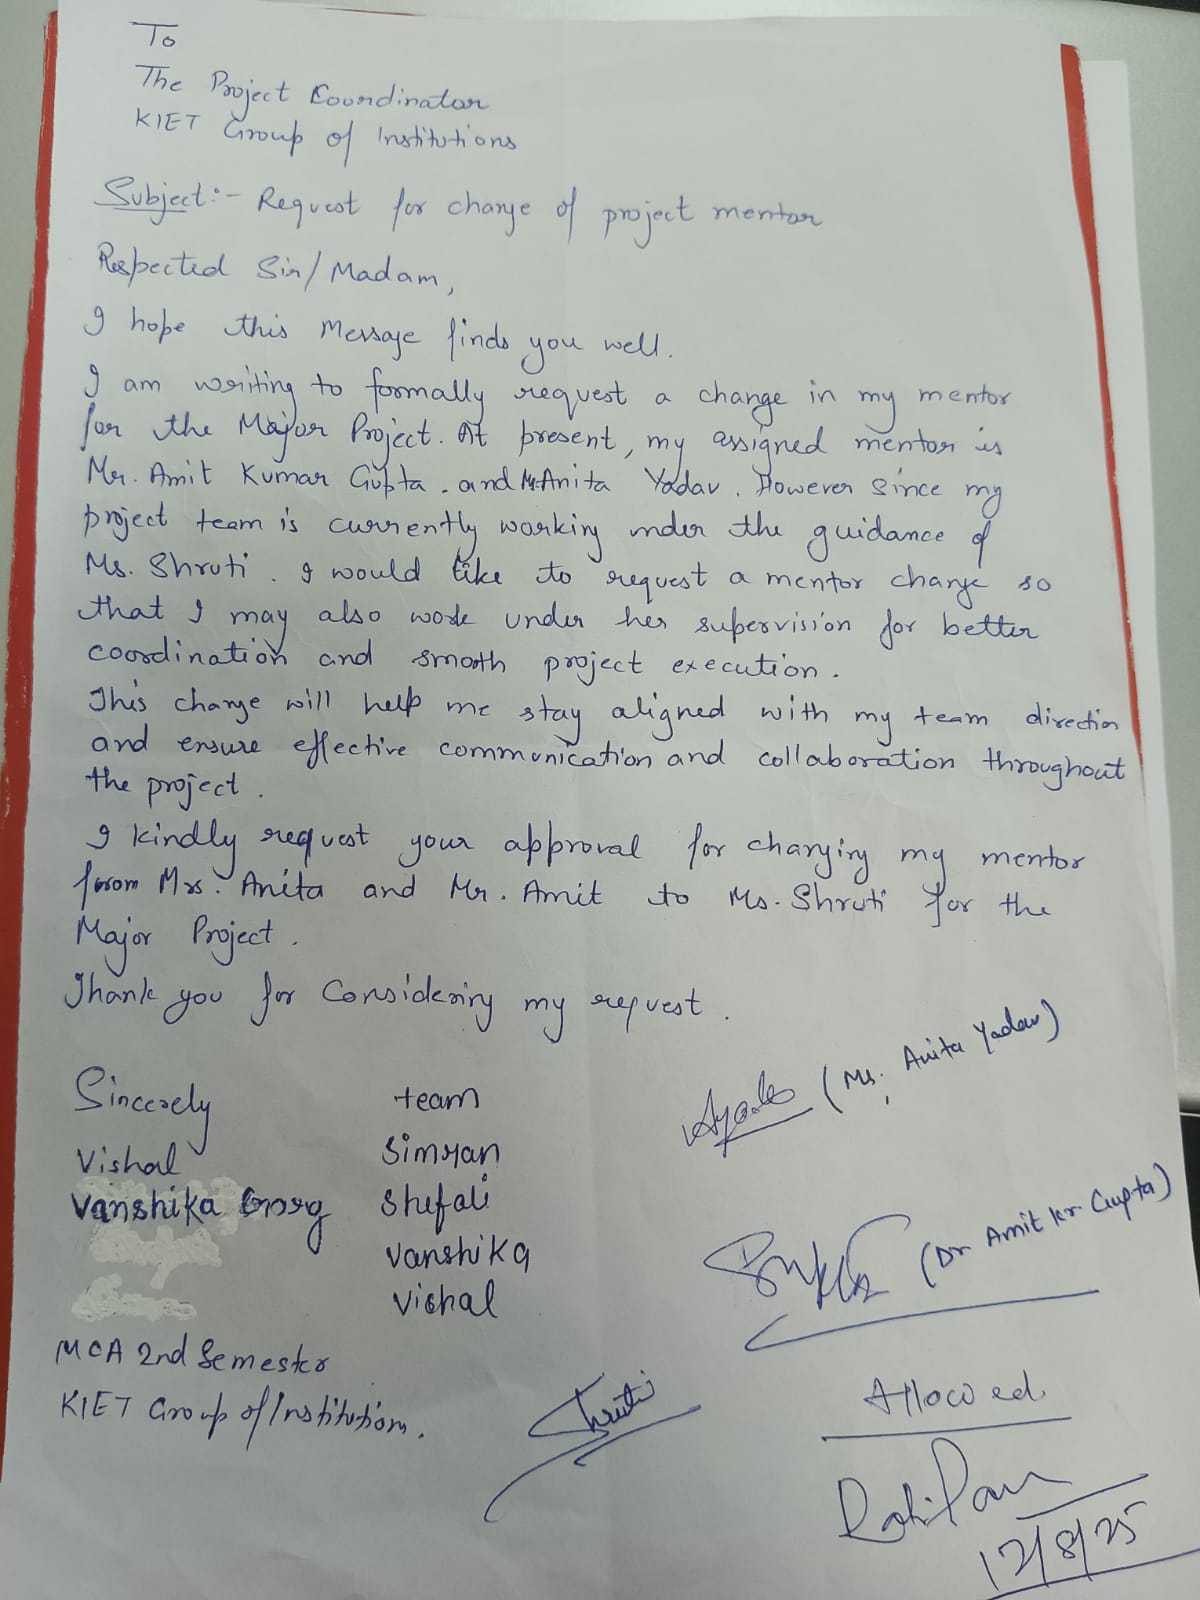 To
The Project Coordinator
KIET Group of Institutions
Subject:- Request for change of project mentor
Respected Sir/Madam,
I hope this Message finds you well.
I am writing to formally request a change in my mentor
for the Major Project. At present, my assigned mentor is
Mr. Amit Kumar Gupta. and Ms. Anita Yadav. However since my
project team is currently working under the guidance of
Ms. Shruti. I would like to request a mentor change so
that I may also work under her supervision for better
coordination and smooth project execution.
This change will help me stay aligned with my team direction
and ensure effective communication and collaboration throughout
the project.
I kindly request your approval for changing my mentor
from Mrs. Anita and Mr. Amit to Ms. Shruti for the
Major Project.
Thank you for Considering my request.
(Ms. Anita Yadav)
Sincerely team
Vishal Simran
Vanshika Garg Shefali
Vanshika
Vishal
(Dr Amit Kr Gupta)
MCA 2nd Semester
KIET Group of Institution.
Shruti
Allowed
12/8/25